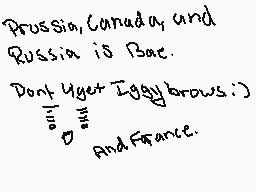 Prussia, Canada, and
Russia is Bae.
Dont 4get Iggybrows :)
And France.